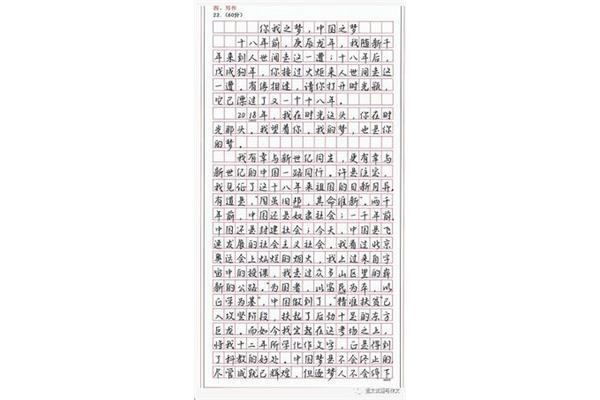 四、写作
22.（60分）
你我之梦，中国之梦
十八年前，庚辰龙年，我随新千
年来到人世间去这一遭；十八年后，
戊戌狗年，你接过火炬来人世间去这
一遭，有缘相逢，请你打开时光瓶，
它已漂过了又一个十八年。
2018年，我在时光这头，你在时
光那头。我望着你，我的梦，也是你
的梦。
我有幸与新世纪同生，更有幸与
新世纪的中国一路同行。许是注定，
我见证了这十八年来祖国的日新月异。
有道是，“周虽旧邦，其命维新”。两千
年前，中国还是奴隶社会；一千年前，
中国还是封建社会；今天，中国是飞
速发展的社会主义社会。我看过北京
奥运会上灿烂的烟火，我上过来自宇
宙中的授课，我去过众多山区里的崭
新的公路。“为国者，以富民为本，以
正学为基”，中国做到了。“精准扶贫”已
入攻坚阶段，扶起了后劲十足的东方
巨龙。而如今我安然在这考场之上，
将我十二年所学化作文字，正是得到
了科教的好处。中国梦是不会停止的
尽管成就已辉煌，但逐梦人不会停下